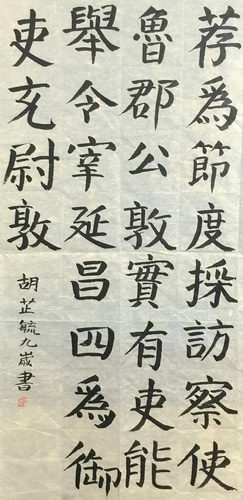 荐為節度採訪察使
魯郡公敦實有吏能
舉令宰延昌四為御
吏充尉敦
胡芷毓九歲書